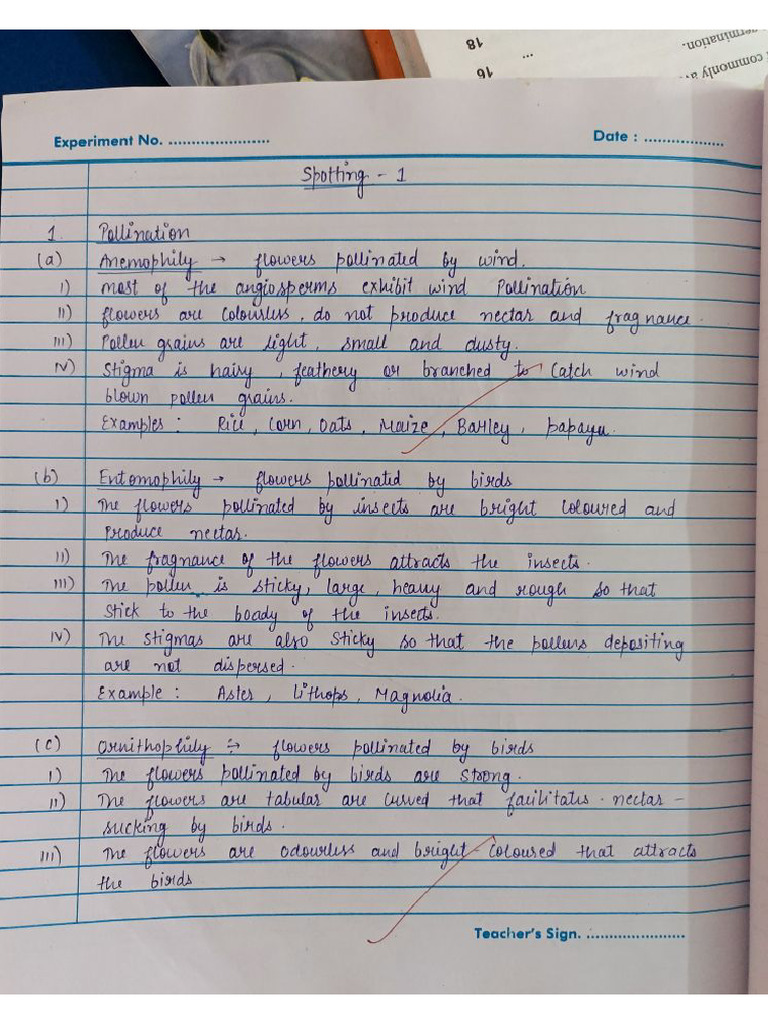 18
16
...
ermination.
commonly a
Experiment No. ......................
Date : ..................
Spotting - 1
1. Pollination
(a) Anemophily → flowers pollinated by wind.
I) most of the angiosperms exhibit wind Pollination
II) flowers are colourless, do not produce nectar and fragnance.
III) Pollen grains are light, small and dusty.
IV) Stigma is hairy, feathery or branched to catch wind
blown pollen grains.
Examples : Rice, Corn, Oats, Maize, Barley, papaya.
(b) Entomophily → flowers pollinated by birds
I) The flowers pollinated by insects are bright coloured and
produce nectar.
II) The fragnance of the flowers attracts the insects.
III) The pollen is sticky, large, heavy and rough so that
stick to the boady of the insects.
IV) The stigmas are also sticky so that the pollens depositing
are not dispersed.
Example : Aster, Lithops, Magnolia.
(c) Ornithophily ÷ flowers pollinated by birds
I) The flowers pollinated by birds are strong.
II) The flowers are tabular are curved that facilitates nectar -
sucking by birds.
III) The flowers are odourless and bright-coloured that attracts
the birds
Teacher's Sign. ......................